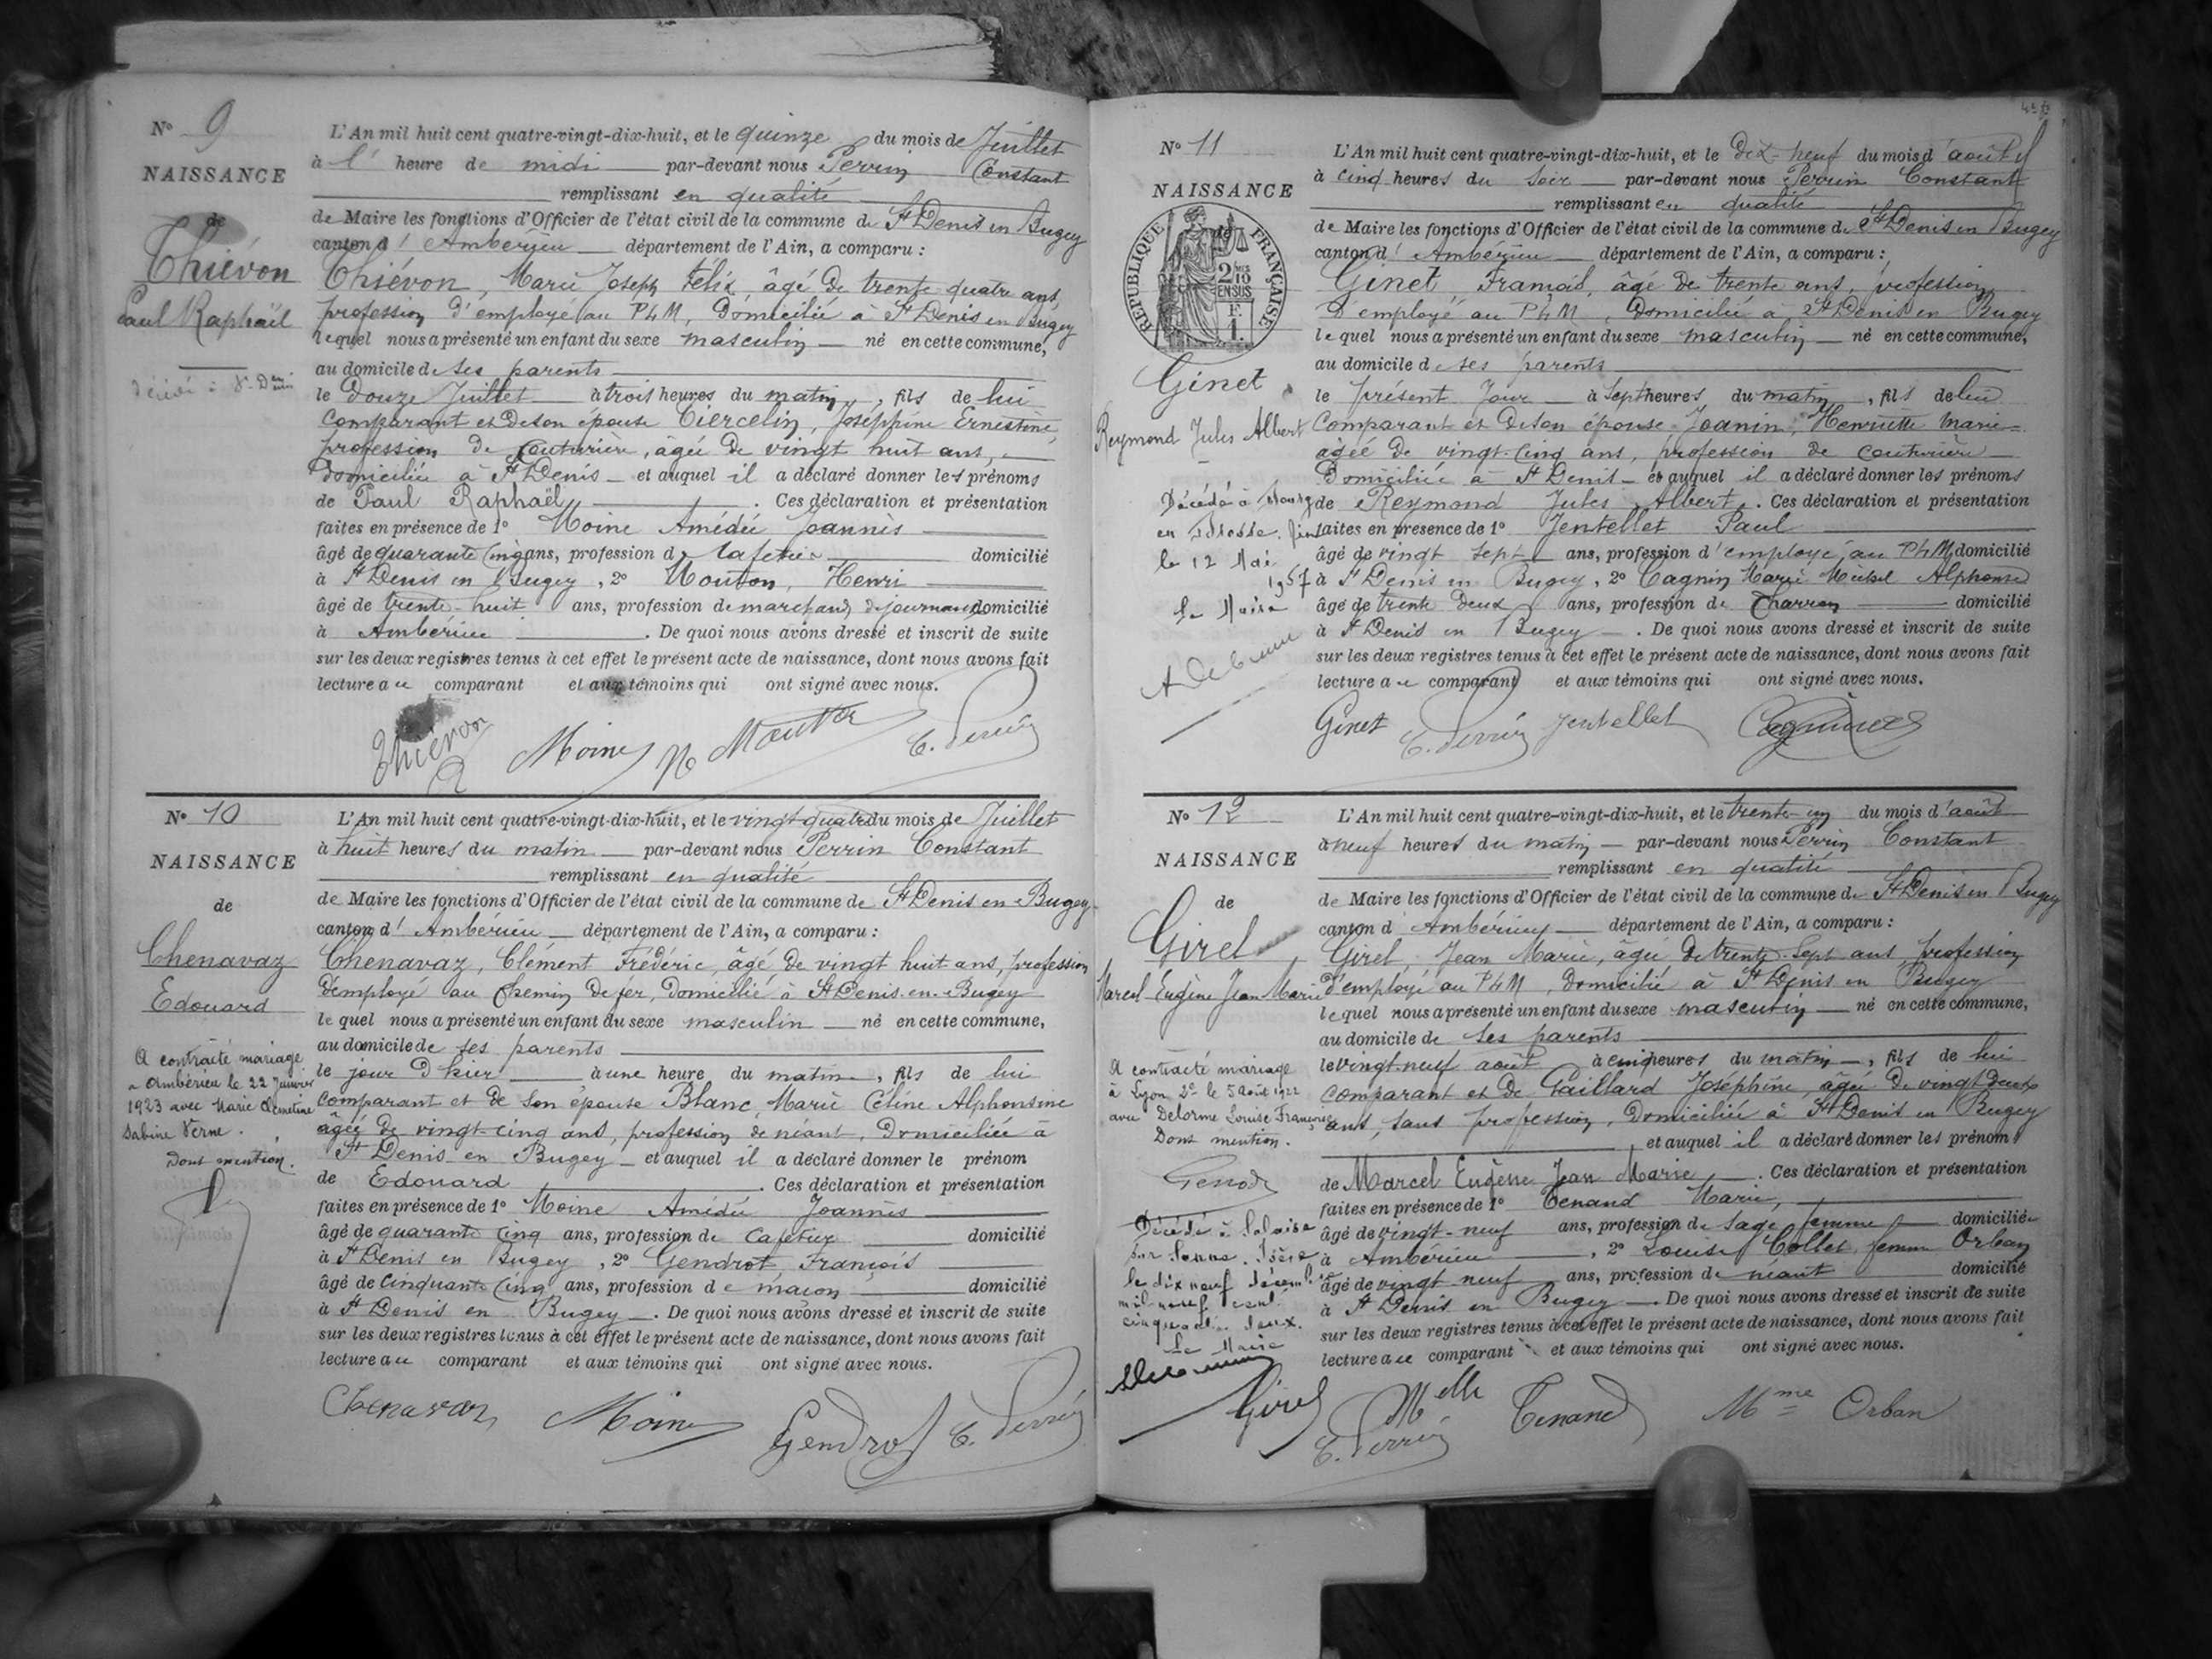 N° 9
NAISSANCE
de
Thiévon
Paul Raphaël
L'An mil huit cent quatre-vingt-dix-huit, et le quinze du mois de Juillet
à l' heure de midi par-devant nous Perrin Constant
remplissant en qualité
de Maire les fonctions d'Officier de l'état civil de la commune de St Denis en Bugey
canton d' Ambérieu département de l'Ain, a comparu :
Thiévon, Marie Joseph Félix, âgé de trente quatre ans,
profession d'employé au PLM, Domicilié à St Denis en Bugey
lequel nous a présenté un enfant du sexe masculin né en cette commune,
au domicile de ses parents
le Douze Juillet à trois heures du matin, fils de lui
Comparant et de son épouse Tiercelin, Joséphine Ernestine,
profession de Couturière, âgée de vingt huit ans,
domiciliée à St Denis et auquel il a déclaré donner les prénoms
de Paul Raphaël. Ces déclaration et présentation
faites en présence de 1° Moine Amédée Joannès
âgé de quarante cinq ans, profession de Cafetier domicilié
à St Denis en Bugey, 2° Mouton, Henri
âgé de trente-huit ans, profession de marchand de journaux domicilié
à Ambérieu. De quoi nous avons dressé et inscrit de suite
sur les deux registres tenus à cet effet le présent acte de naissance, dont nous avons fait
lecture au comparant et aux témoins qui ont signé avec nous.
Thiévon Moine H Mouton C. Perrin
N° 10
NAISSANCE
de
Chenavaz
Edouard
A contracté mariage
à Ambérieu le 22 Janvier
1923 avec Marie
Sabine Verne.
Dont mention.
L'An mil huit cent quatre-vingt-dix-huit, et le vingt-quatre du mois de Juillet
à huit heures du matin par-devant nous Perrin Constant
remplissant en qualité
de Maire les fonctions d'Officier de l'état civil de la commune de St Denis en Bugey
canton d' Ambérieu département de l'Ain, a comparu :
Chenavaz, Clément Frédéric, âgé de vingt huit ans, profession
d'employé au Chemin de fer, Domicilié à St Denis-en-Bugey
lequel nous a présenté un enfant du sexe masculin né en cette commune,
au domicile de ses parents
le jour d'hier à une heure du matin, fils de lui
comparant et de son épouse Blanc, Marie Céline Alphonsine
âgée de vingt-cinq ans, profession de néant, Domiciliée à
St Denis en Bugey et auquel il a déclaré donner le prénom
de Edouard. Ces déclaration et présentation
faites en présence de 1° Moine Amédée Joannès
âgé de quarante cinq ans, profession de Cafetier domicilié
à St Denis en Bugey, 2° Gendrot, François
âgé de cinquante cinq ans, profession de maçon domicilié
à St Denis en Bugey. De quoi nous avons dressé et inscrit de suite
sur les deux registres tenus à cet effet le présent acte de naissance, dont nous avons fait
lecture au comparant et aux témoins qui ont signé avec nous.
Chenavaz Moine Gendrot C. Perrin
N° 11
NAISSANCE
de
RÉPUBLIQUE FRANÇAISE
Ginet
Reymond Jules Albert
Décédé à
en
le 12 Mai
1957
Le Maire
L'An mil huit cent quatre-vingt-dix-huit, et le Dix-neuf du mois d'août
à cinq heures du soir par-devant nous Perrin Constant
remplissant en qualité
de Maire les fonctions d'Officier de l'état civil de la commune de St Denis en Bugey
canton d' Ambérieu département de l'Ain, a comparu :
Ginet François, âgé de trente ans, profession
d'employé au PLM, Domicilié à St Denis en Bugey
lequel nous a présenté un enfant du sexe masculin né en cette commune,
au domicile de ses parents
le présent Jour à Sept heures du matin, fils de lui
Comparant et de son épouse Joanin, Henriette Marie
âgée de vingt-cinq ans, profession de couturière
Domiciliée à St Denis et auquel il a déclaré donner les prénoms
de Reymond Jules Albert. Ces déclaration et présentation
faites en présence de 1° Jentellet Paul
âgé de vingt sept ans, profession d'employé au PLM domicilié
à St Denis en Bugey, 2° Cagnin Marie Michel Alphonse
âgé de trente deux ans, profession de Charron domicilié
à St Denis en Bugey. De quoi nous avons dressé et inscrit de suite
sur les deux registres tenus à cet effet le présent acte de naissance, dont nous avons fait
lecture au comparant et aux témoins qui ont signé avec nous.
Ginet C. Perrin Jentellet
N° 12
NAISSANCE
de
Girel
Marcel Eugène Jean Marie
A contracté mariage
à Lyon 2e le 5 août 1922
avec Delorme Louise Françoise
Dont mention.
Décédé à Salaise
sur Sanne. Isère
le dix neuf décembre
mil neuf cent
cinquante deux.
Le Maire
L'An mil huit cent quatre-vingt-dix-huit, et le trente-un du mois d'août
à neuf heures du matin par-devant nous Perrin Constant
remplissant en qualité
de Maire les fonctions d'Officier de l'état civil de la commune de St Denis en Bugey
canton d' Ambérieu département de l'Ain, a comparu :
Girel, Jean Marie, âgé de trente-sept ans, profession
d'employé au PLM, Domicilié à St Denis en Bugey
lequel nous a présenté un enfant du sexe masculin né en cette commune,
au domicile de ses parents
le vingt-neuf août à cinq heures du matin, fils de lui
comparant et de Gaillard Joséphine, âgée de vingt-deux
ans, sans profession, Domiciliée à St Denis en Bugey
et auquel il a déclaré donner les prénoms
de Marcel Eugène Jean Marie. Ces déclaration et présentation
faites en présence de 1° Tenand Marie,
âgé de vingt-neuf ans, profession de Sage femme domiciliée
à Ambérieu, 2° Louise Collet femme Orban
âgé de vingt neuf ans, profession de néant domicilié
à St Denis en Bugey. De quoi nous avons dressé et inscrit de suite
sur les deux registres tenus à cet effet le présent acte de naissance, dont nous avons fait
lecture au comparant et aux témoins qui ont signé avec nous.
Girel C. Perrin Melle Tenand Mme Orban